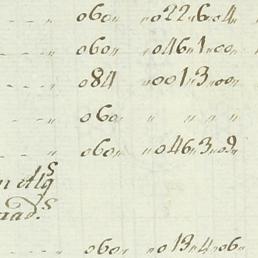 - - - " 060 " "022"6"04"
- - - " 060 " "046"1"00"
- - - " 084 "001"3"00"
- - - " 060 " " " "
- - - " 060 " "046"3"09"
n Alqs
aads.
- - " 060 " "013"4"06"